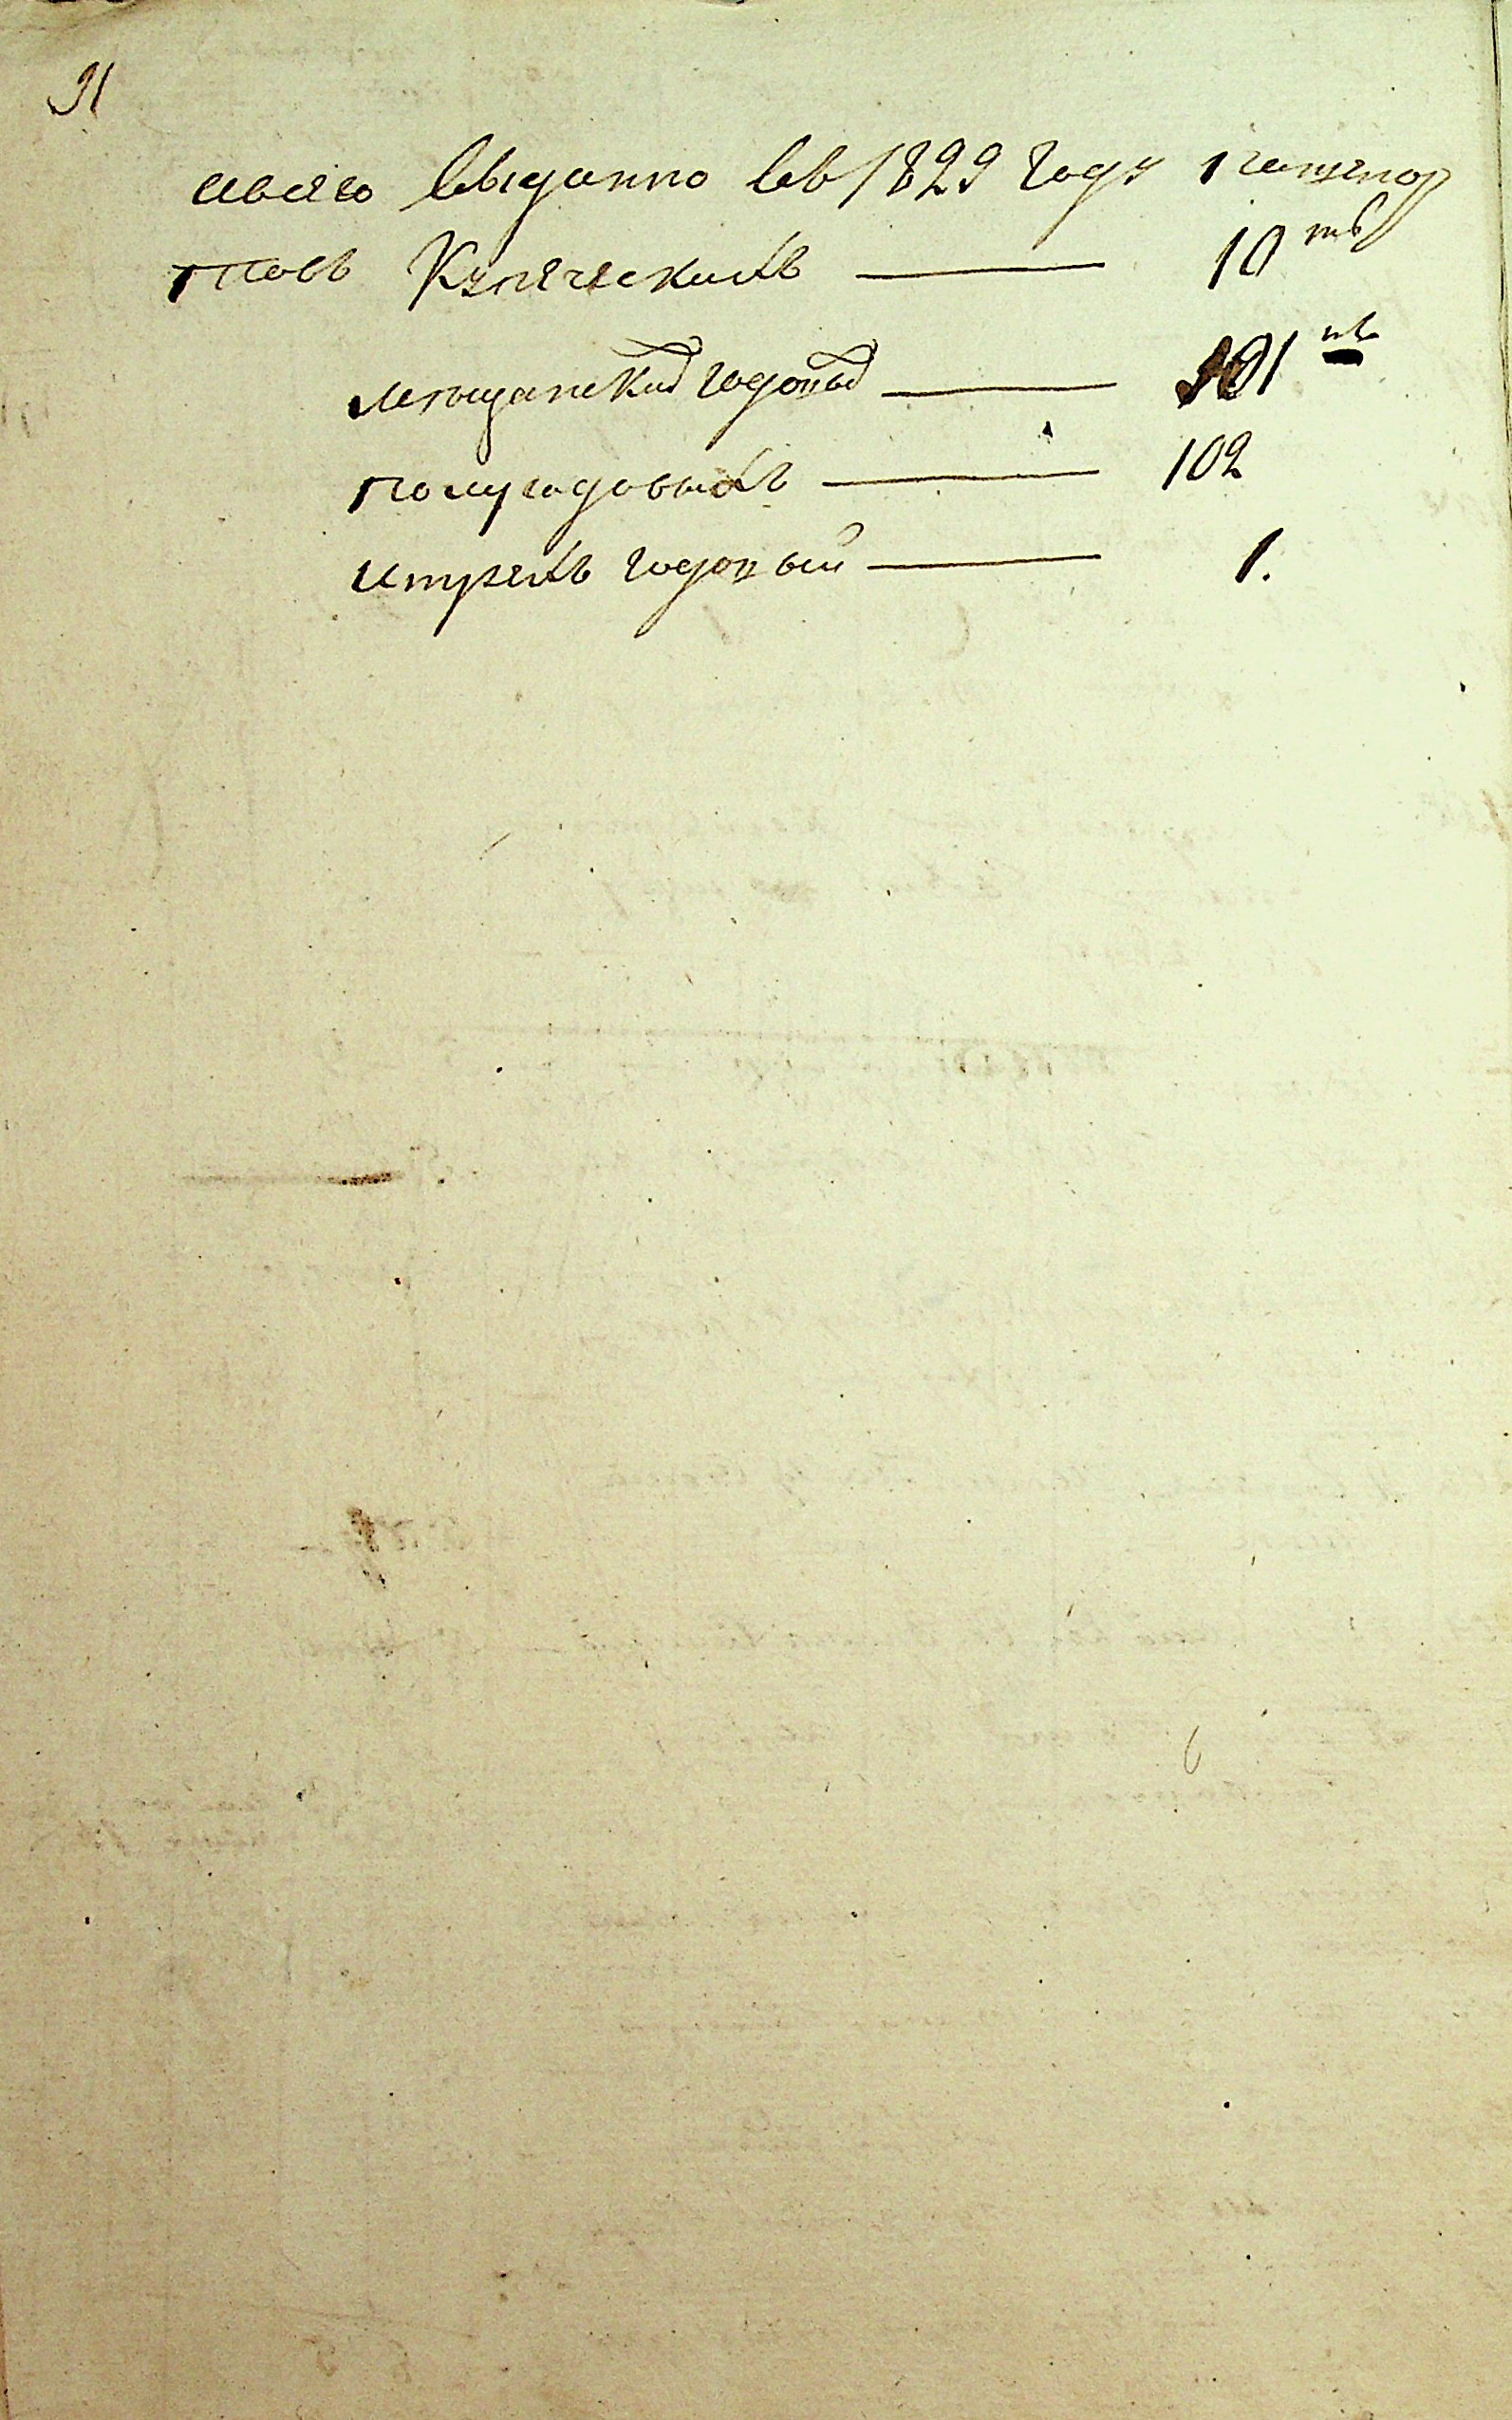 91
авсего выданно вв 1829 году пашпор
товъ Купеческихъ — 10 ть
мещанских годовых — 101
полугодовыхъ — 102
итрехъ годовый — 1.